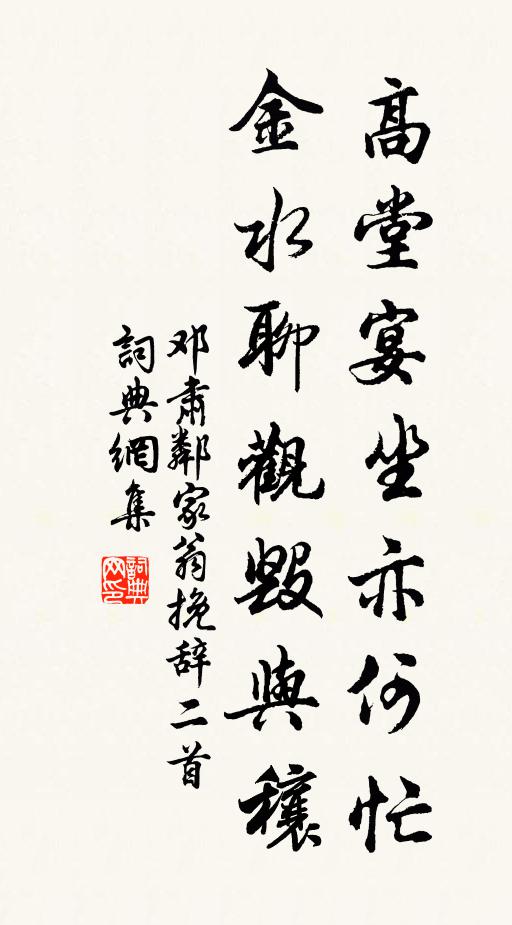 高堂宴坐亦何忙
金水聊觀毀與穰
邓肃鄰家翁挽辞二首
詞典網集
詞典网印